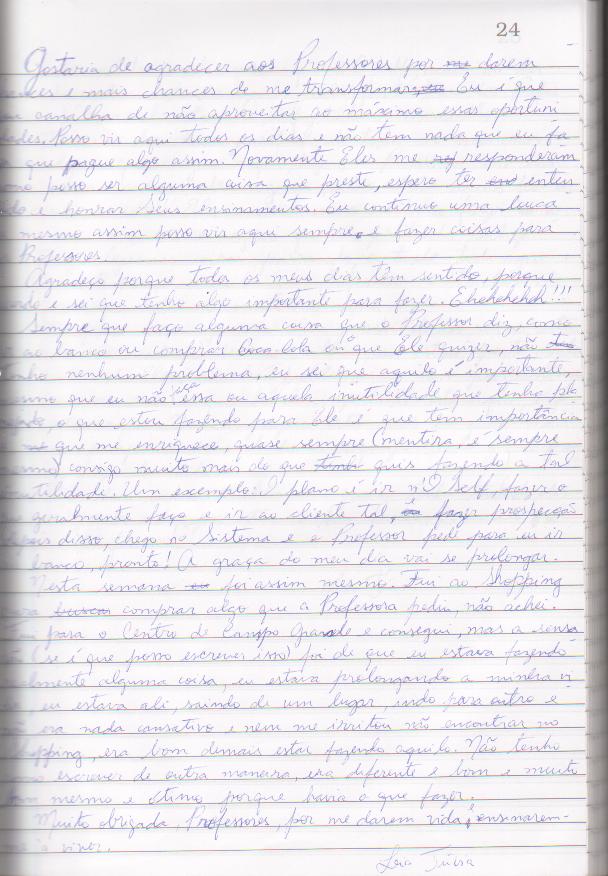 24
Gostaria de agradecer aos Professores por me darem
e mais chances de me transformar. Eu é que
canalha de não aproveitar ao máximo essas oportuni
dades. Posso vir aqui todos os dias e não tem nada que eu fa
que pague algo assim. Novamente Eles me responderam
posso ser alguma coisa que preste, espero ter enten
e honrar Seus ensinamentos. Eu continuo uma louca
mesmo assim posso vir aqui sempre e fazer coisas para
Professores.
Agradeço porque todos os meus dias têm sentido, porque
e sei que tenho algo importante para fazer. Ehehehehh!!!
Sempre que faço alguma coisa que o Professor diz, como
ao banco ou comprar Coca-Cola ou o que Ele quizer, não
nenhum problema, eu sei que aquilo é importante,
que eu não essa ou aquela inutilidade que tenho pla
o que estou fazendo para Ele é que tem importância
que me enriquece, quase sempre (mentira, é sempre
mesmo) consigo muito mais do que quis fazendo a tal
inutilidade. Um exemplo: O plano é ir n'O Self, fazer o
geralmente faço e ir ao cliente tal, fazer prospecção
depois disso, chego no Sistema e o Professor pede para eu ir
banco, pronto! A graça do meu dia vai se prolongar.
Nesta semana foi assim mesmo. Fui ao Shopping
para buscar comprar algo que a Professora pediu, não achei.
para o Centro de Campo Grande e consegui, mas a sensa
(se é que posso escrever isso) foi de que eu estava fazendo
alguma coisa, eu estava prolongando a minha vi
eu estava ali, saindo de um lugar, indo para outro e
era nada cansativo e nem me irritou não encontrar no
Shopping, era bom demais estar fazendo aquilo. Não tenho
escrever de outra maneira, era diferente e bom e muito
bom mesmo e ótimo porque havia o que fazer.
Muito obrigada, Professores, por me darem vida e ensinarem-
me a viver.